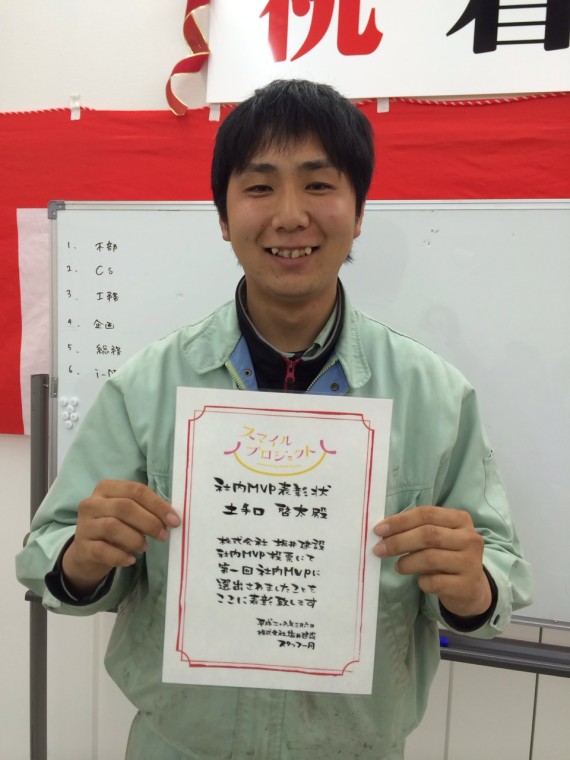 祝 着
1. 木部
2. CS
3 工務
4. 企画
5. 総務
6.
スマイル
プロジェクト
社内MVP表彰状
土和口 啓太殿
株式会社 坂井建設
社内MVP投票にて
第一回社内MVPに
選出されましたことを
ここに表彰致します
株式会社坂井建設
スタッフ一同